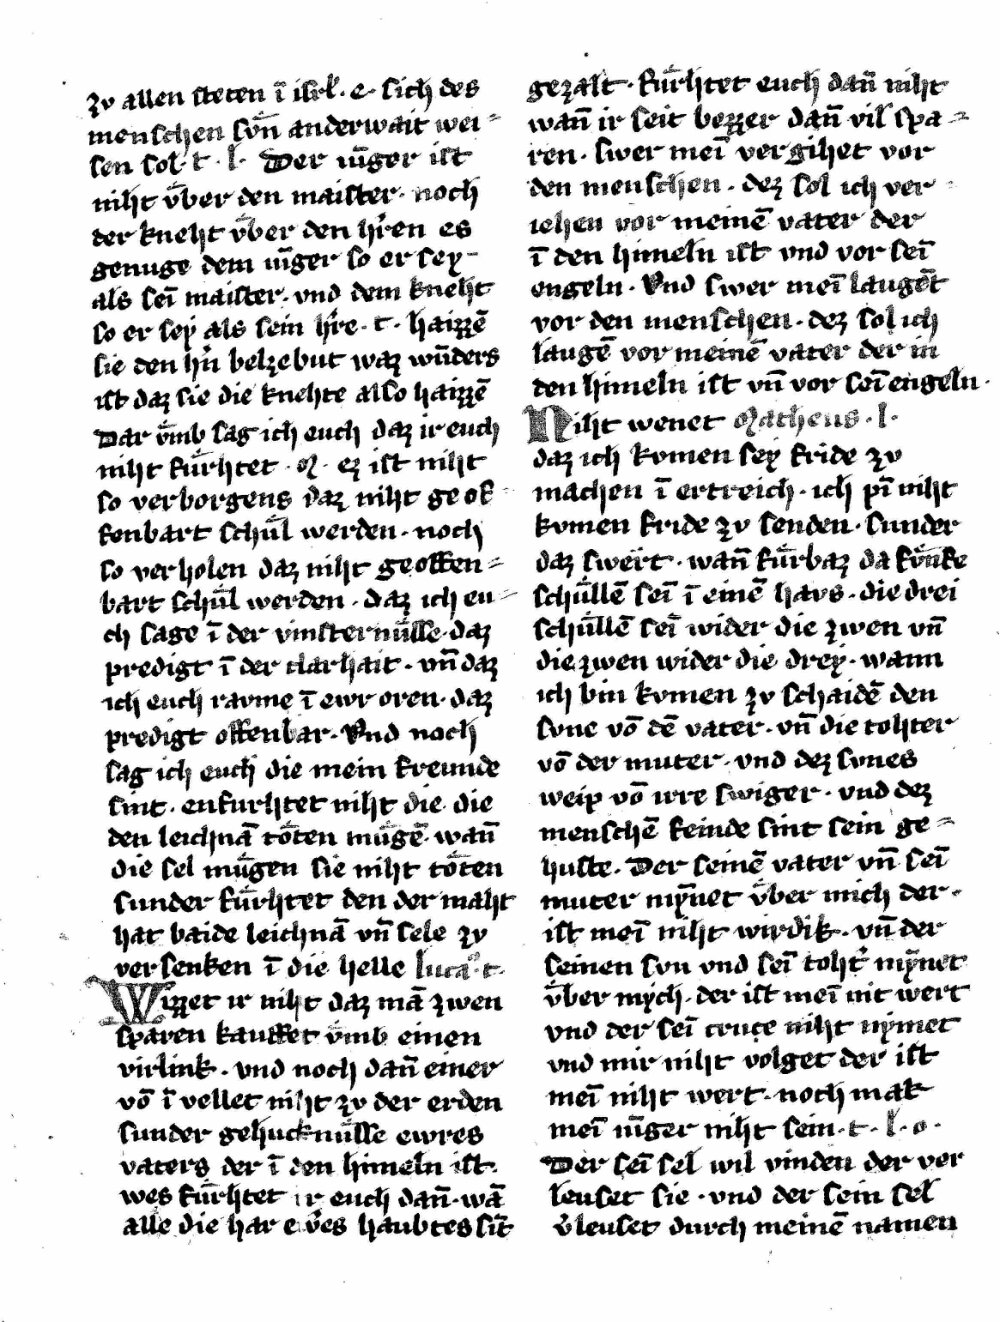 zv allen steten ī isrł · e · sich des
menschen sv̄n anderwait wei=
sen sol · t · l · Der iv̄ger ist
niht v̊ber den maister · noch
der kneht v̊ber den hr̄en es
genuge dem iv̄ger so er sey=
als seī maister · vnd dem kneht
so er sey als sein hr̄e · t · haizzē
sie den hr̄n belzebut waz wūders
ist daz sie die knehte also haizzē
Dar v̄mb sag ich euch daz ir euch
niht fůrhtet · M · ez ist niht
so verborgens daz niht geof
fenbart schůl werden · noch
so verholen daz niht geoffen=
bart schůl werden · daz ich eu=
ch sage ī der vinsternůsse · daz
predigt ī der clarhait · vn̄ daz
ich euch ravme ī ewr oren · daz
predigt offenbar · Vnd noch
sag ich euch die mein freunde
sint · enfurhtet niht die · die
den leichnā tőten můgē · wan̄
die sel můgen sie niht tőten
sunder fůrhtet den der maht
hat baide leichnā vn̄ sele zv
versenken ī die helle luca · t ·
Wizzet ir niht daz mā zwen
sparen kauffet v̄mb einen
virlink · vnd noch dan̄ einer
vō ī vellet niht zv der erden
sunder gehucknůsse ewres
vaters der ī den himeln ist ·
wes fůrhtet ir euch dan̄ · wā
alle die har ewes haubtes sīt
gezalt · fůrhtet euch dan̄ niht
wan̄ ir seit bezzer dan̄ vil spa=
ren · swer meī vergihet vor
den menschen · dez sol ich ver
iehen vor meinē vater der
ī den himeln ist vnd vor seī
engeln · Vnd swer meī laugēt
vor den menschen · dez sol ich
laugē vor meinē vater der in
den himeln ist vn̄ vor seī engeln ·
Niht wenet Matheus · l ·
daz ich kvmen sey fride zv
machen ī ertreich · ich pī niht
kvmen fride zv senden · sunder
daz swert · wan̄ fůrbaz da fv̊nfe
schůllē seī ī einē havs · die drei
schůllē seī wider die zwen vn̄
die zwen wider die drey · wann
ich bin kvmen zv schaidē den
svne vō dē vater · vn̄ die tohter
vō der muter · vnd dez svnes
weip vō irre swiger · vnd dez
menschē feinde sint sein ge=
husse · Der seinē vater vn̄ seī
muter mȳnet v̊ber mich der ·
ist meī niht wirdik · vn̄ der
seinen svn vnd seī toht' mȳnet
v̊ber mych · der ist meī nit wert
vnd der seī cruce niht nymet
vnd mir niht volget der ist
meī niht wert · noch mak
meī iv̄ger niht sein · t · l · o ·
Der seī sel wil vinden der ver
leuset sie · vnd der sein sel
v'leuset durch meinē namen